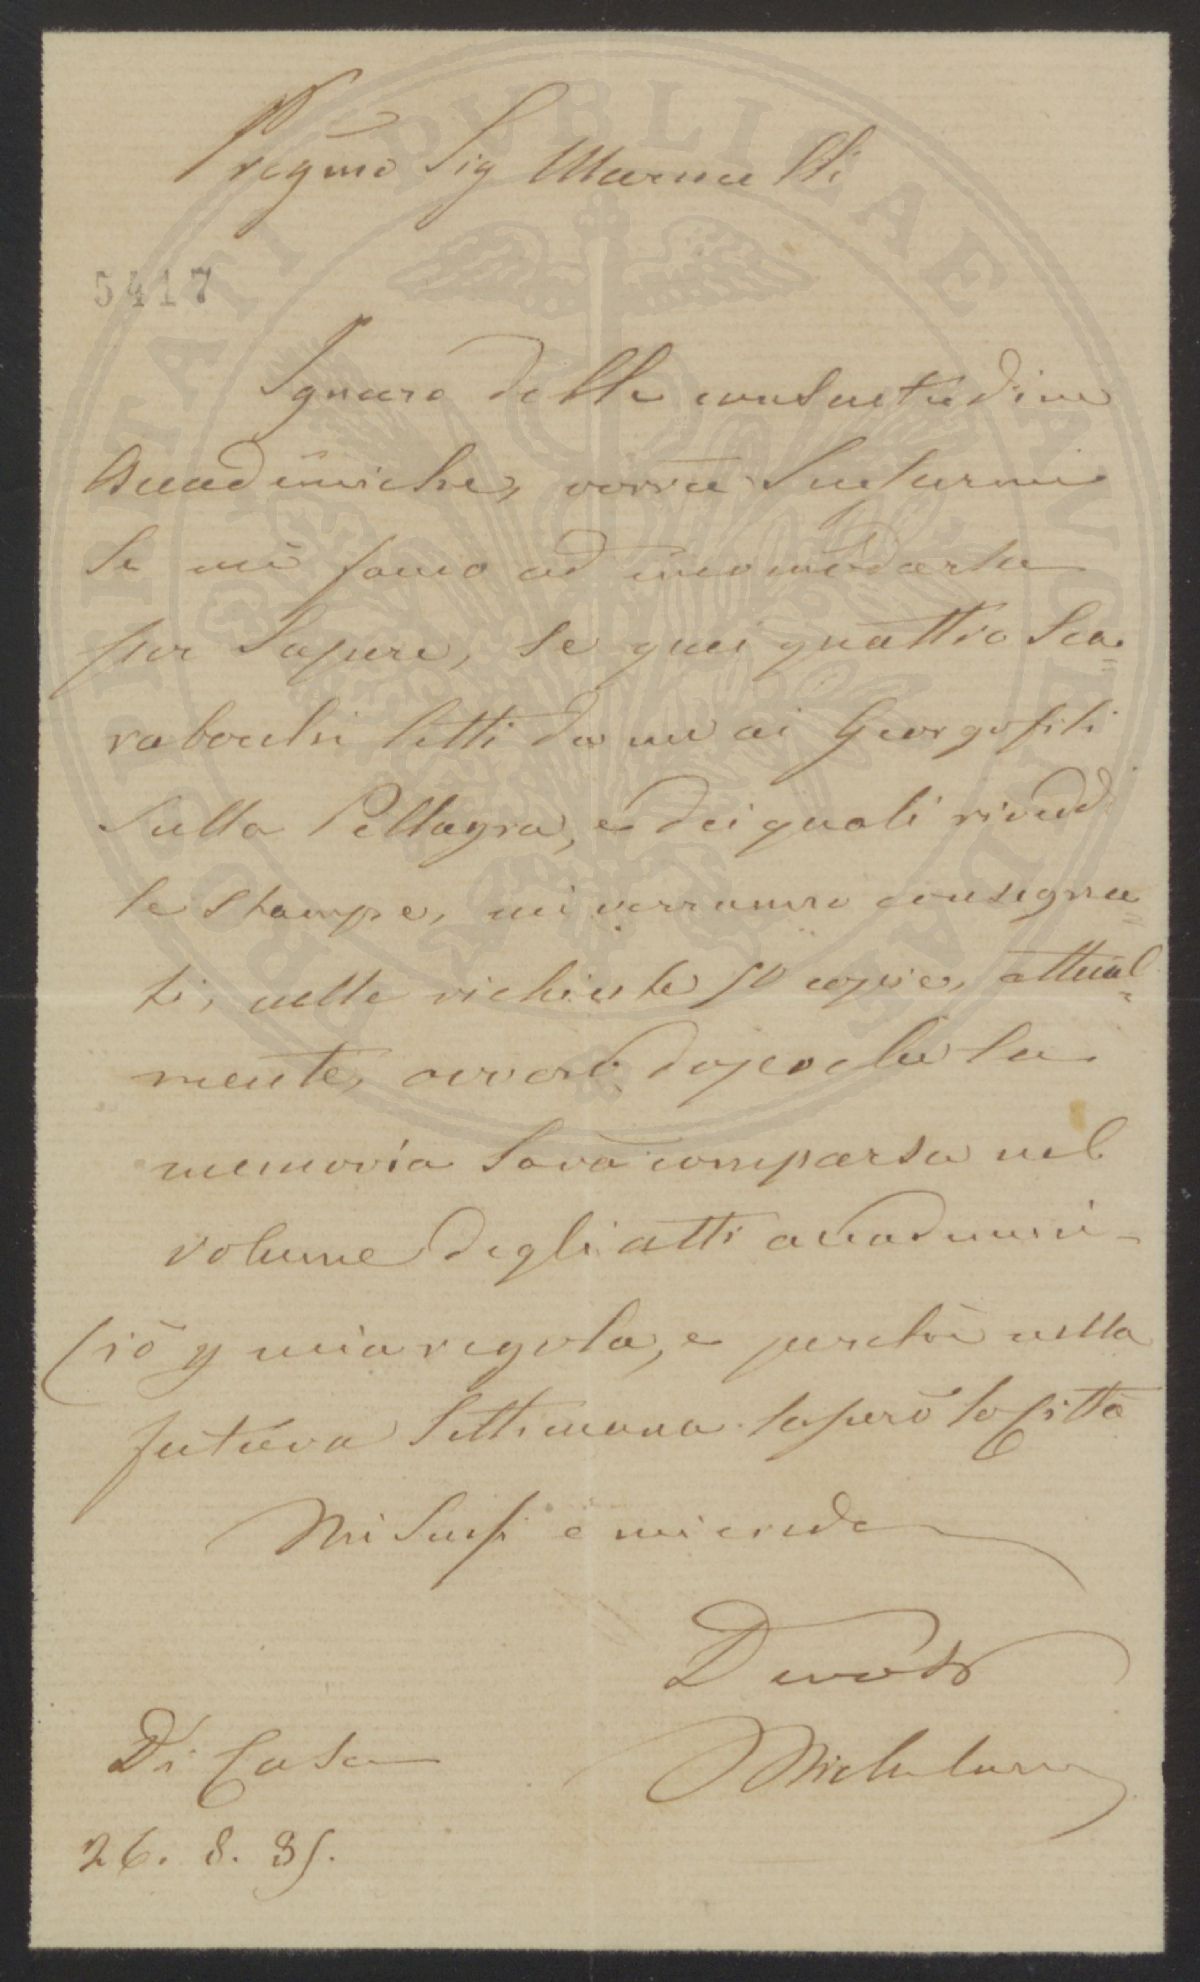 Pregmo Sig Marucelli
5417
Ignaro delle consuetudine
Accademiche, vorrà Scusarmi
Se mi faccio ad incomodarla
per Sapere, Se quei quattro Sca=
rabocchi letti da me ai Georgofili
Sulla Pellagra, e dei quali rividdi
le stampe, mi verranno consegna=
ti, nelle richieste 50 copie, attual=
mente, ovvero dopo che la
memoria Sarà comparsa nel
volume degli atti accademici -
Ciò p mia regola, e perchè nella
futura Settimana lascerò la Città
Mi Scusi e mi creda
Devoto
Michelacci
Di Casa
26. 8. 85.
PROSPERITATI PVBLICAE AVGENDAE